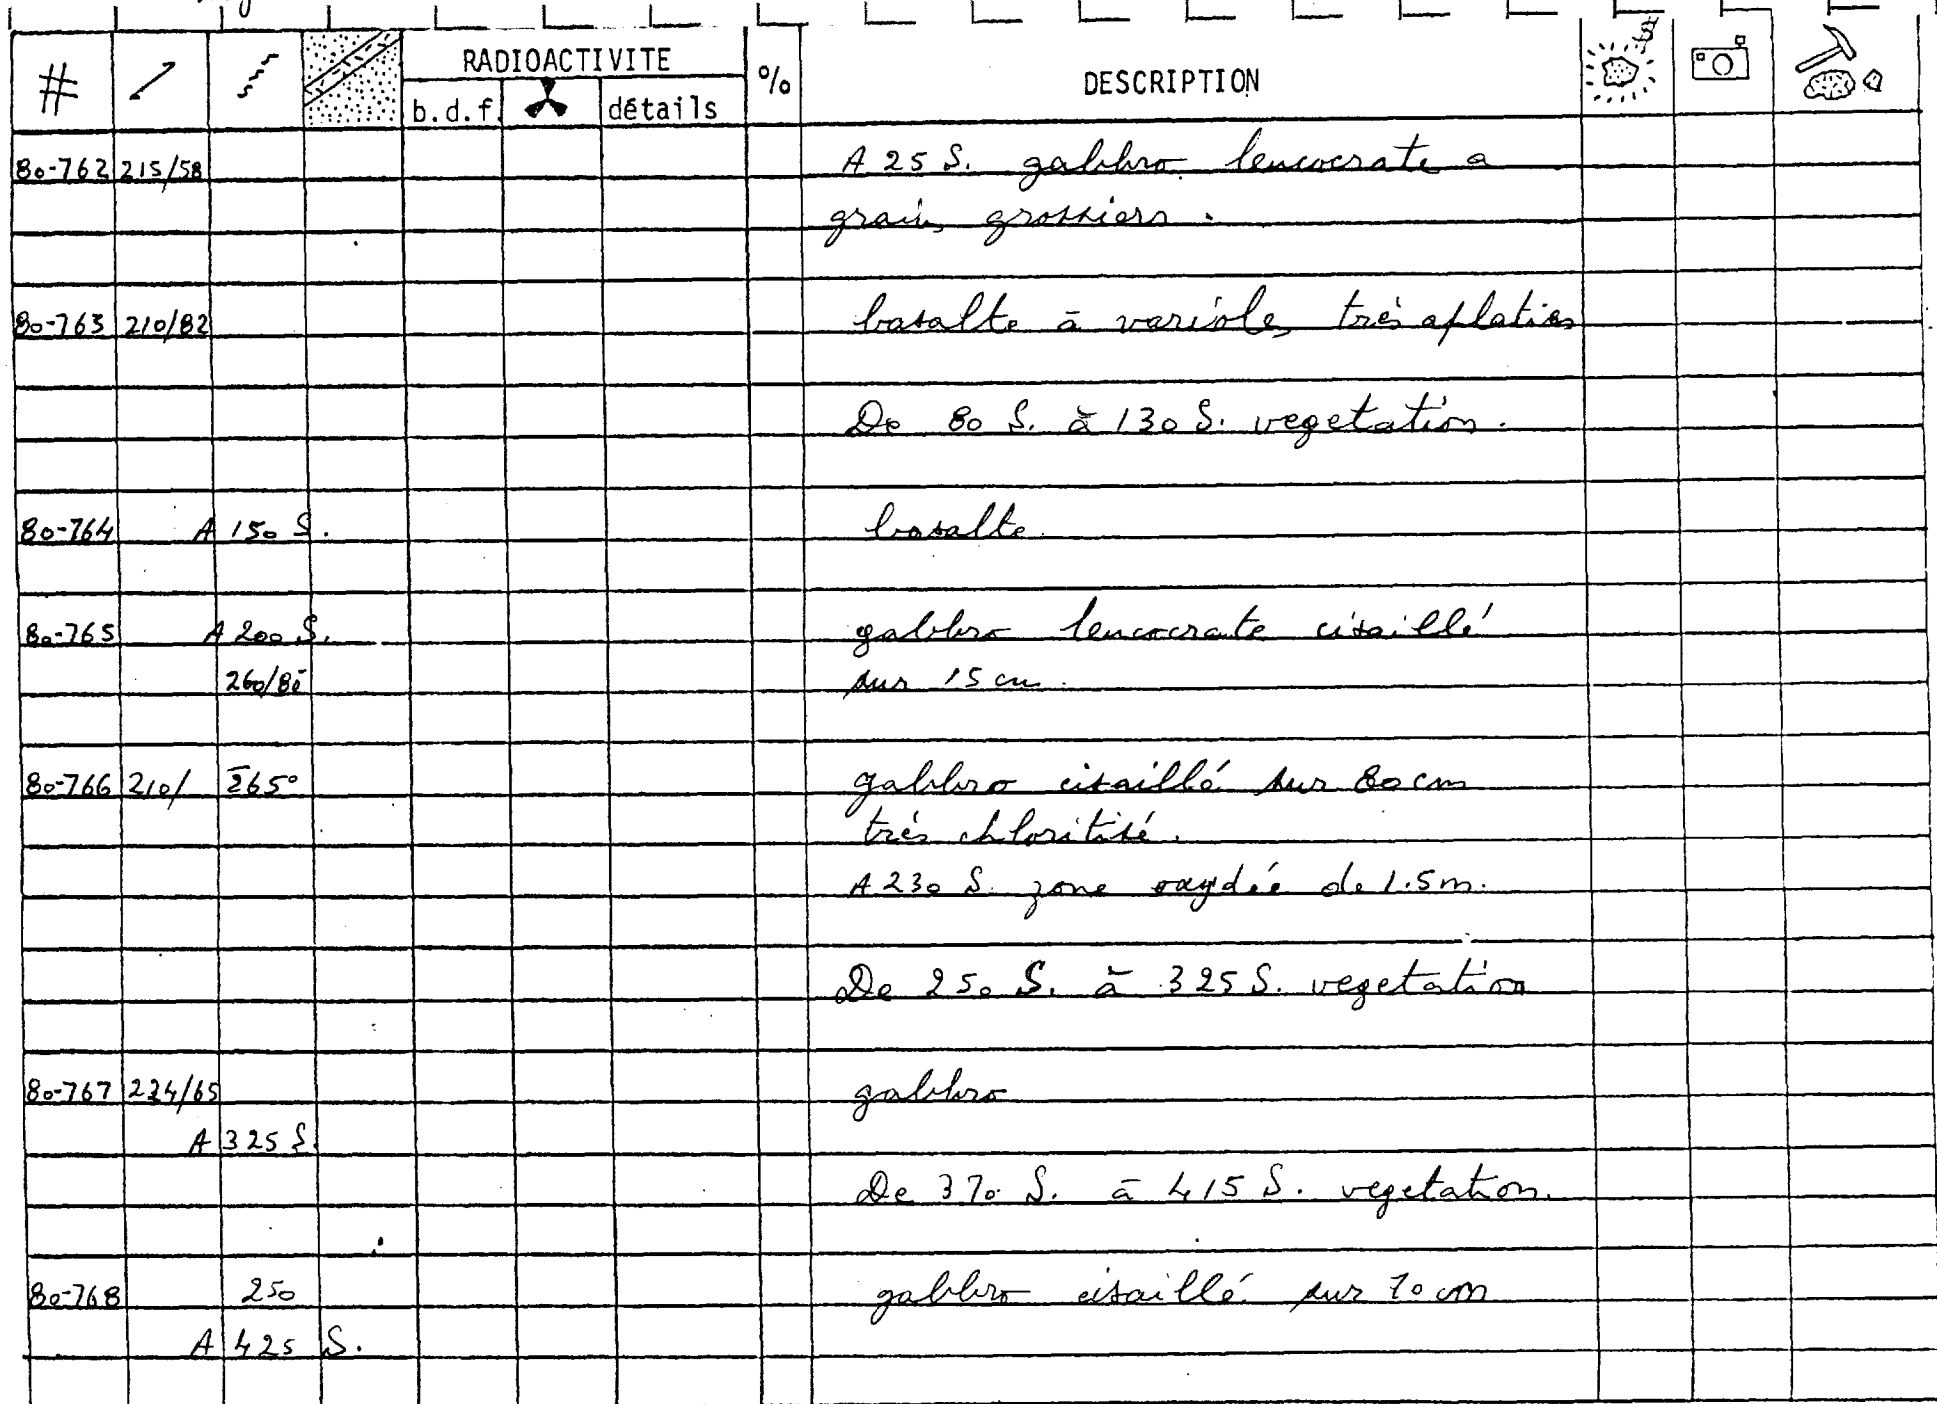 # RADIOACTIVITE % DESCRIPTION
b.d.f. détails
80-762 215/58 A 25 S. gabbro leucocrate a
grains grossiers.
80-763 210/82 basalte à varioles très aplaties
De 80 S. à 130 S. vegetation.
80-764 A 150 S. basalte.
80-765 A 200 S. gabbro leucocrate cisaillé
260/80 sur 15 cm.
80-766 210/ 265° gabbro cisaillé sur 80 cm
très chloritisé.
A 230 S. zone oxydée de 1.5 m.
De 250 S. à 325 S. vegetation
80-767 224/65 gabbro
A 325 S.
De 370 S. à 415 S. vegetation.
80-768 250 gabbro cisaillé sur 70 cm
A 425 S.